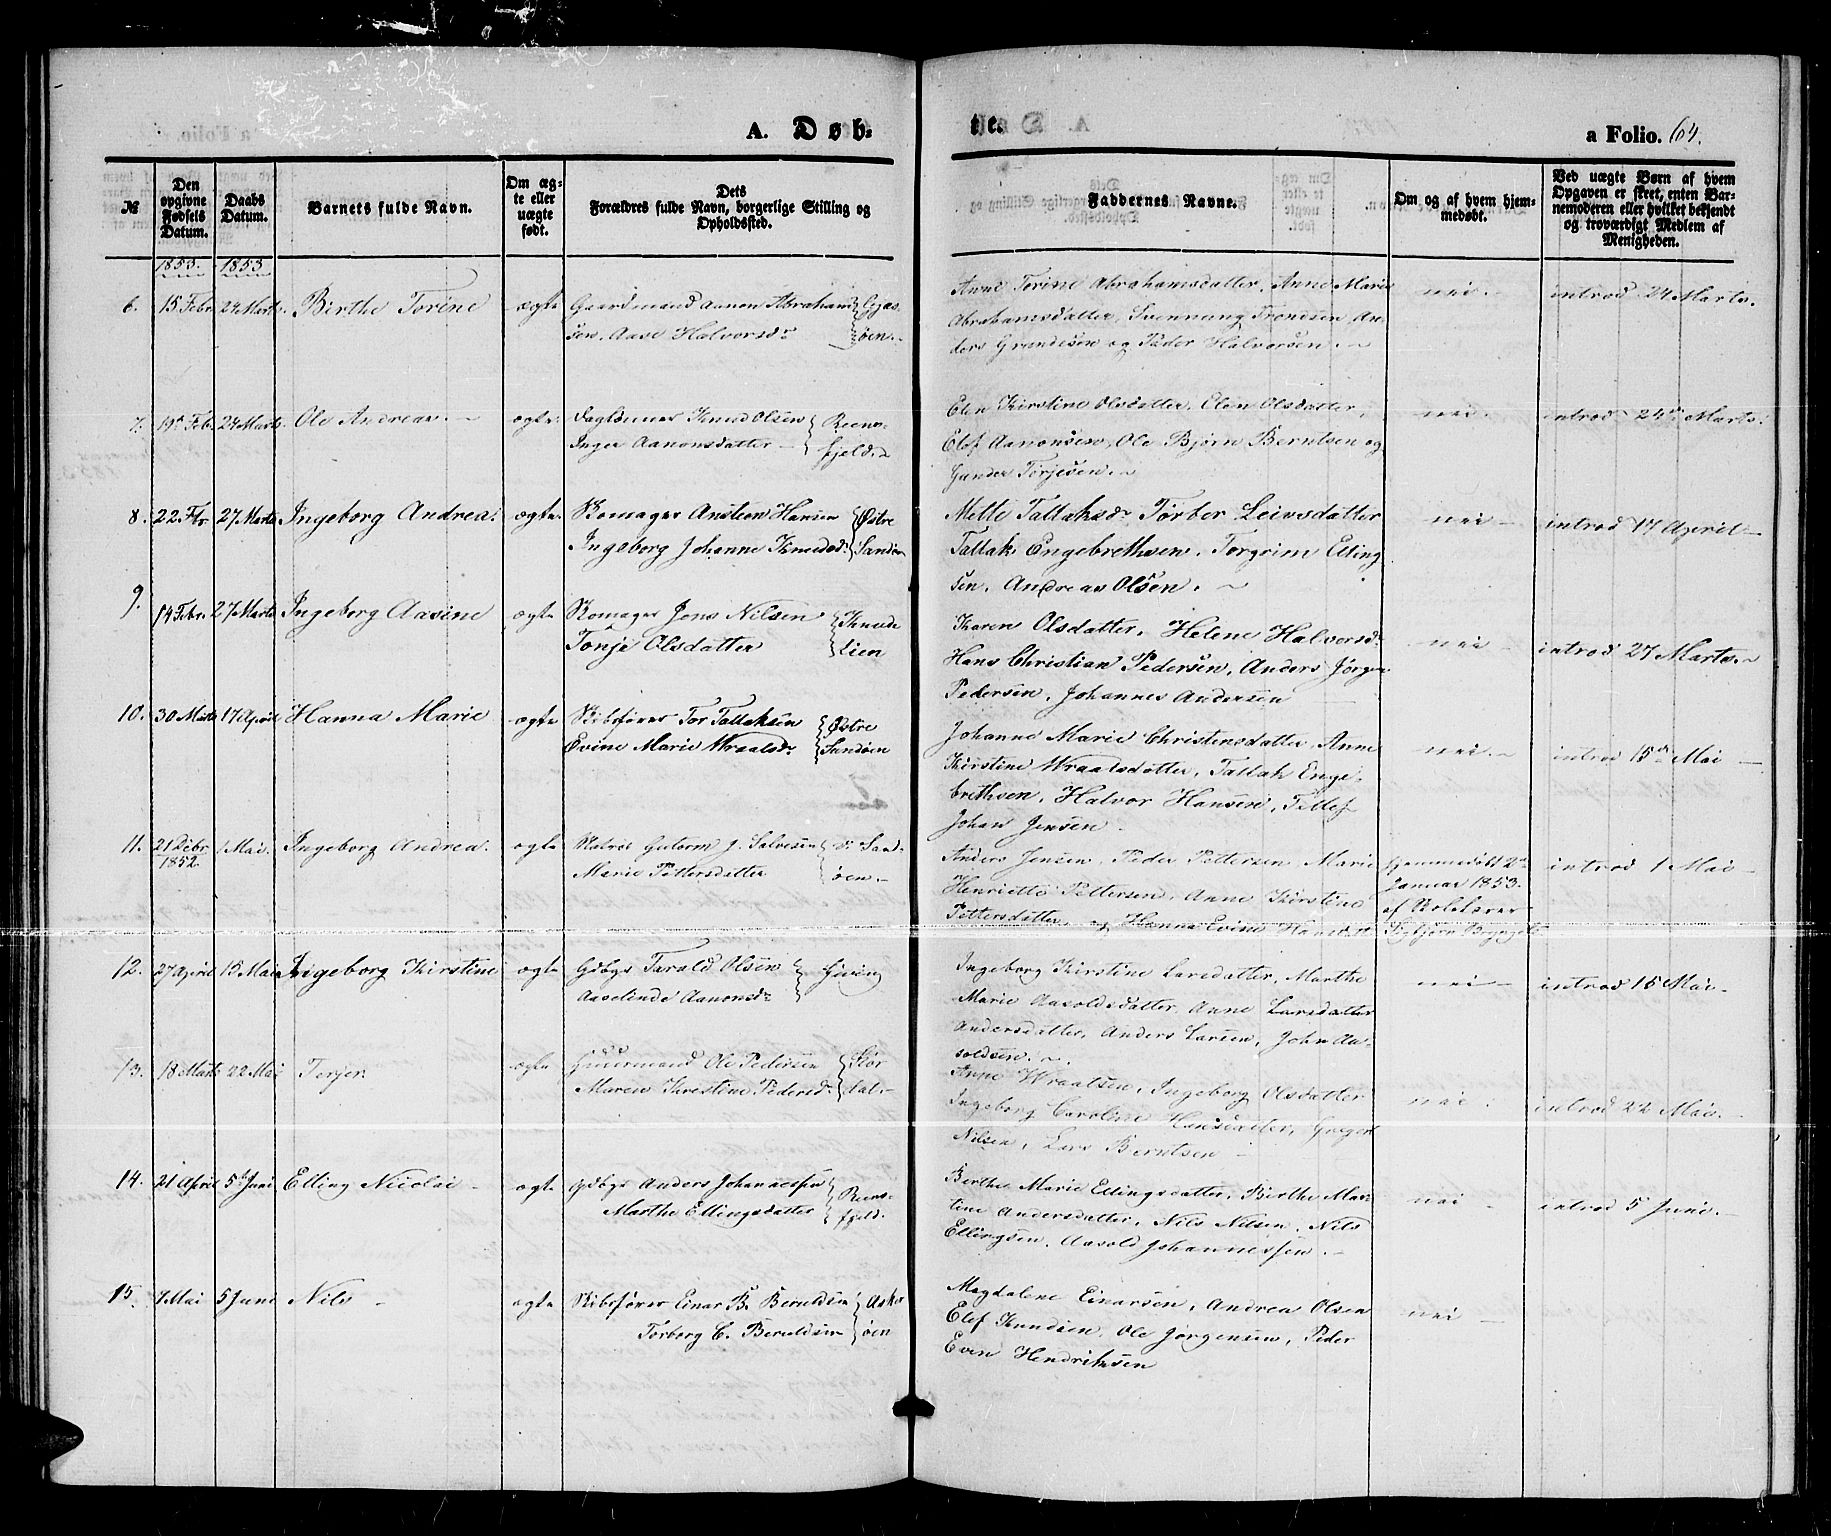 A. Døb-
te.
a Folio. 64.
№
Den opgivne Fødsels Datum.
Daabs Datum.
Barnets fulde Navn.
Om ægte eller uægte født.
Dets Forældres fulde Navn, borgerlige Stilling og Opholdssted.
Faddernes Navne.
Om og af hvem hjemmedøbt.
Ved uægte Børn af hvem Opgaven er skeet, enten Barnemoderen eller hvilket bekjendt og troværdigt Medlem af Menigheden.
1853. 1853
6. 15 Febr 24 Marts. Birthe Torine ægte Gaardmand Aanon Abraham-
sen. Aase Halvorsdr øen.
Anne Torine Abrahamsdatter, Anne Marie
Abrahamsdatter, Svennung Trondsen, An-
ders Grundesen og Peder Halvorsen.
nei. introd 24 Marts.
7. 19de Febr. 24 Marts. Ole Andreas ægte Knud Olsen Reens-
Inger Aanonsdatter fjeld.
Elen Kirstine Olsdatter, Elen Olsdatter,
Elef Aanonsen, Ole Bjørn Berntsen og
Gunder Terjesen.
nei. introd 24de Marts.
8. 22 Fbr. 27 Marts Ingeborg Andrea. ægte Skomager Ansteen Hansen Østre
Ingeborg Johanne Knudsdr Sandøen
Mette Tallaksdr Torber Leivsdatter
Tallak Engebrethsen, Torgrim Elling
sen, Andreas Olsen.
nei introd 17 April
9. 14 Febr. 27 Marts Ingeborg Aasine ægte Skomager Jens Nilsen Knude
Tonje Olsdatter Lien
Karen Olsdatter, Helene Halvorsdr
Hans Christian Pedersen, Anders Jørgen
Pedersen, Johannes Andersen
nei introd 27 Marts.
10. 30 Marts 17 April Hanna Marie ægte Skibsfører Tor Tallaksen Østre
Evine Marie Wraalsdr Sandøen
Johanne Marie Christensdatter, Anne
Kirstine Wraalsdatter, Tallak Enge-
brethsen, Halvor Hansen, Tellef
Johan Jensen.
nei. introd 15de Mai
11. 21 Debr 1852. 1 Mai. Ingeborg Andrea. ægte Matros Gutorm J. Salvesen V. Sand-
Marie Pettersdatter øen.
Anders Jensen Peder Pettersen Marie
Henriette Pettersen, Anne Kirstine
Pettersdatter og Hanna Evine Hansdtr
Hjemmedøbt 2den
Januar 1853.
af Skolelærer
introd 1 Mai
12. 27 April 15 Mai Ingeborg Kirstine ægte Gdbgr Tarald Olsen Giving
Aaselinde Aanonsdr
Ingeborg Kirstine Larsdatter, Marthe
Marie Aasoldsdatter, Anne Larsdatter
Andersdatter, Anders Larsen, John Aa-
soldsen.
nei introd 15 Mai.
13. 18 Marts 22 Mai Terjer ægte Huusmand Ole Pedersen Stor
Maren Kirstine Pedersdr dal.
Anne Wraalsen, Ingeborg Olsdatter
Ingeborg Caroline Hansdatter, Gregert
Nilsen, Lars Berntsen
nei. introd 22 Mai.
14. 21 April 5te Juni Elling Nicolai ægte Gdbgr Anders Johannessen Reens-
Marthe Ellingsdatter fjeld.
Berthe Marie Ellingsdatter, Birthe Mar-
tine Andersdatter, Nils Nilsen, Nils
Ellingsen, Aasold Johannessen.
nei introd 5 Juni.
15. 7 Mai 5 Juni Nils ægte Skibsfører Einar B. Beruldsen Asker
Torborg C. Beruldsen øen
Magdalene Einarsen, Andrea Olsen
Elef Knudsen, Ole Jørgensen, Peder
Even Hendriksen
nei